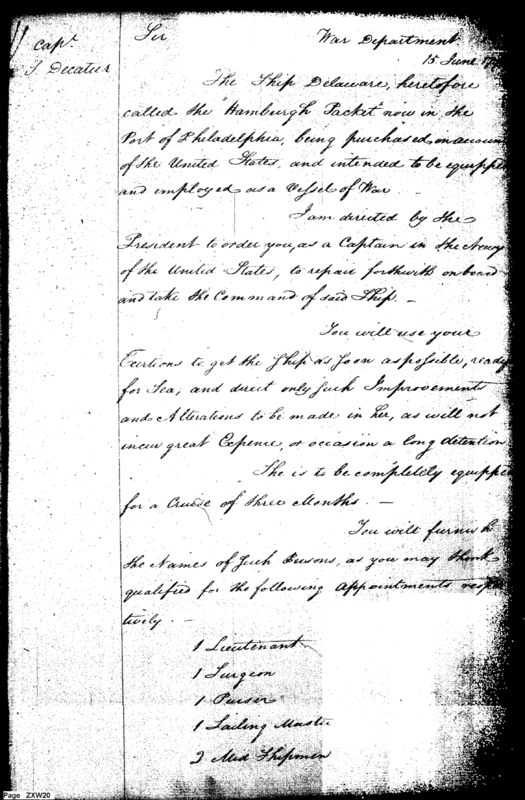 Capt.
S. Decatur
Sir War Department
15 June
The Ship Delaware, heretofore
called the "Hamburgh Packet" now in the
Port of Philadelphia, being purchased on accoun
of the United States, and intended to be equippe
and employed as a Vessel of War.
I am directed by the
President to order you, as a Captain in the Navy
of the United States, to repair forthwith on board
and take the Command of said Ship. —
You will use your
Exertions to get the Ship as soon as possible, ready
for Sea, and direct only such Improvements
and Alterations to be made in her, as will not
incur great Expence, or occasion a long detention
She is to be completely equippe
for a Cruise of three Months. —
You will furnish
the Names of such Persons, as you may think
qualified for the following Appointments respec
tively. —
1 Lieutenant
1 Surgeon
1 Purser
1 Sailing Master
Mid Shipmen
Page ZXW20